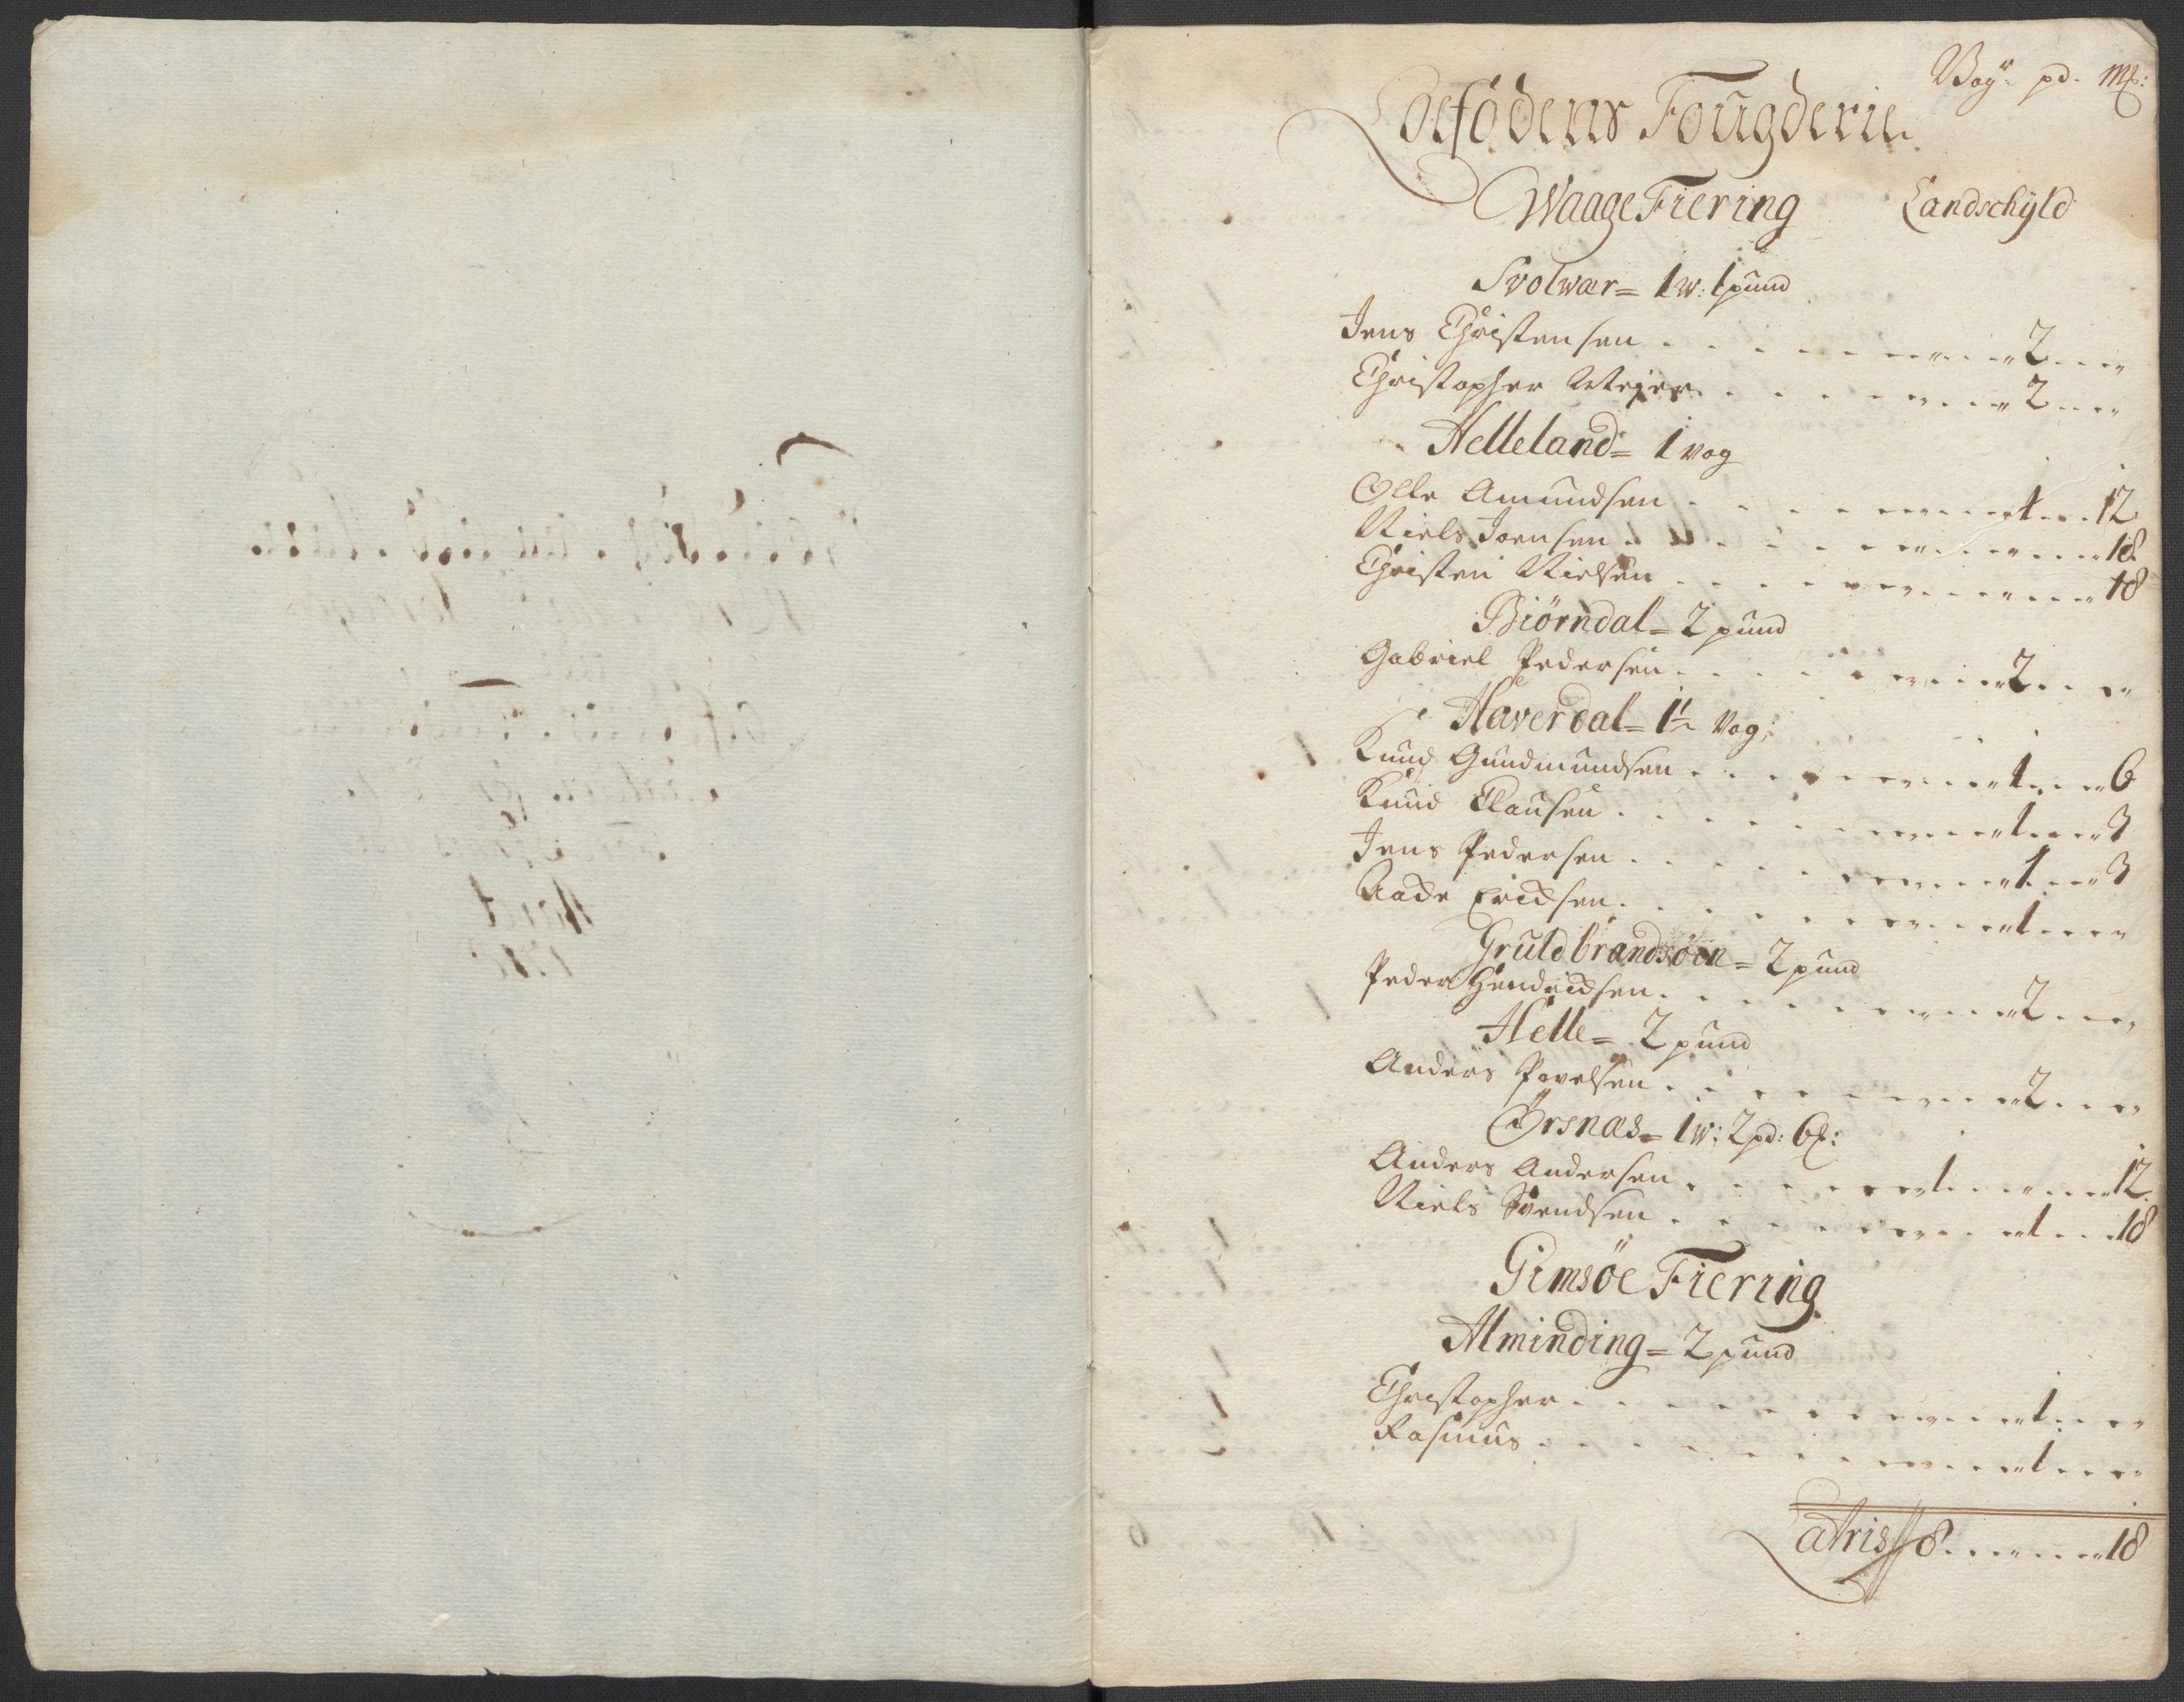 Vog pd. mk:
Lofodens Fougderie
Waage Fiering Landschyld
Svolwær = 1 w: 1 pund
Jens Christensen 2
Christopher Meyer 2
Helleland = 1 vog
Olle Amundsen 1 12
Niels Joensen 18
Christen Nielsen 18
Biörndal = 2 pund
Gabriel Pedersen 2
Haverdal = 1½ Vog
Knud Gundmundsen 1 6
Knud Clausen 1 3
Jens Pedersen 1 3
Aade Ericksen 1
Gruldbrandsöen = 2 pund
Peder Hendricksen 2
Helle = 2 pund
Anders Povelsen 2
Örsnæs = 1 w: 2 pd: 6 mk:
Anders Andersen 1 12
Niels Svendsen 1 18
Gimsöe Fiering
Alminding = 2 pund
Christopher 1
Rasmus 1
Latris 8 18